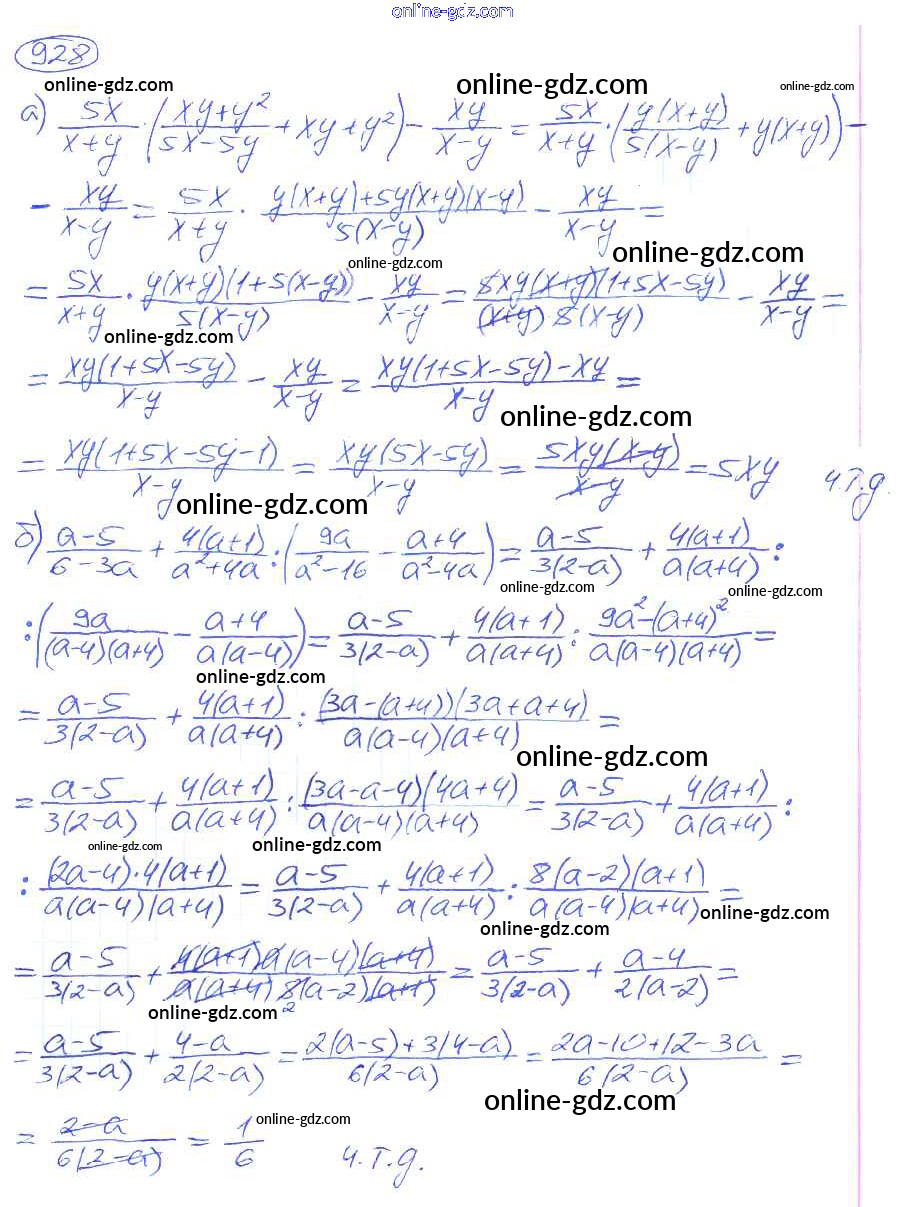 online-gdz.com
928
online-gdz.com online-gdz.com online-gdz.com
а) 5x/(x+y) · ((xy+y²)/(5x-5y) + xy+y²) - xy/(x-y) = 5x/(x+y) · (y(x+y)/5(x-y) + y(x+y)) -
- xy/(x-y) = 5x/(x+y) · (y(x+y)+5y(x+y)(x-y))/5(x-y) - xy/(x-y) =
online-gdz.com online-gdz.com
= 5x/(x+y) · y(x+y)(1+5(x-y))/5(x-y) - xy/(x-y) = 5xy(x+y)(1+5x-5y)/(x+y)·5(x-y) - xy/(x-y) =
online-gdz.com
= xy(1+5x-5y)/(x-y) - xy/(x-y) = (xy(1+5x-5y)-xy)/(x-y) =
online-gdz.com
= xy(1+5x-5y-1)/(x-y) = xy(5x-5y)/(x-y) = 5xy(x-y)/(x-y) = 5xy ч.т.д.
online-gdz.com
б) (a-5)/(6-3a) + 4(a+1)/(a²+4a) : (9a/(a²-16) - (a+4)/(a²-4a)) = (a-5)/3(2-a) + 4(a+1)/a(a+4) :
online-gdz.com online-gdz.com
: (9a/(a-4)(a+4) - (a+4)/a(a-4)) = (a-5)/3(2-a) + 4(a+1)/a(a+4) : (9a²-(a+4)²)/a(a-4)(a+4) =
online-gdz.com
= (a-5)/3(2-a) + 4(a+1)/a(a+4) : (3a-(a+4))(3a+a+4)/a(a-4)(a+4) =
online-gdz.com
= (a-5)/3(2-a) + 4(a+1)/a(a+4) : (3a-a-4)(4a+4)/a(a-4)(a+4) = (a-5)/3(2-a) + 4(a+1)/a(a+4) :
online-gdz.com online-gdz.com
: (2a-4)·4(a+1)/a(a-4)(a+4) = (a-5)/3(2-a) + 4(a+1)/a(a+4) : 8(a-2)(a+1)/a(a-4)(a+4) =
online-gdz.com online-gdz.com
= (a-5)/3(2-a) + 4(a+1)a(a-4)(a+4)/a(a+4)8(a-2)(a+1) = (a-5)/3(2-a) + (a-4)/2(a-2) =
online-gdz.com 2
= (a-5)/3(2-a) + (4-a)/2(2-a) = (2(a-5)+3(4-a))/6(2-a) = (2a-10+12-3a)/6(2-a) =
online-gdz.com
= (2-a)/6(2-a) = 1/6 ч.т.д.
online-gdz.com